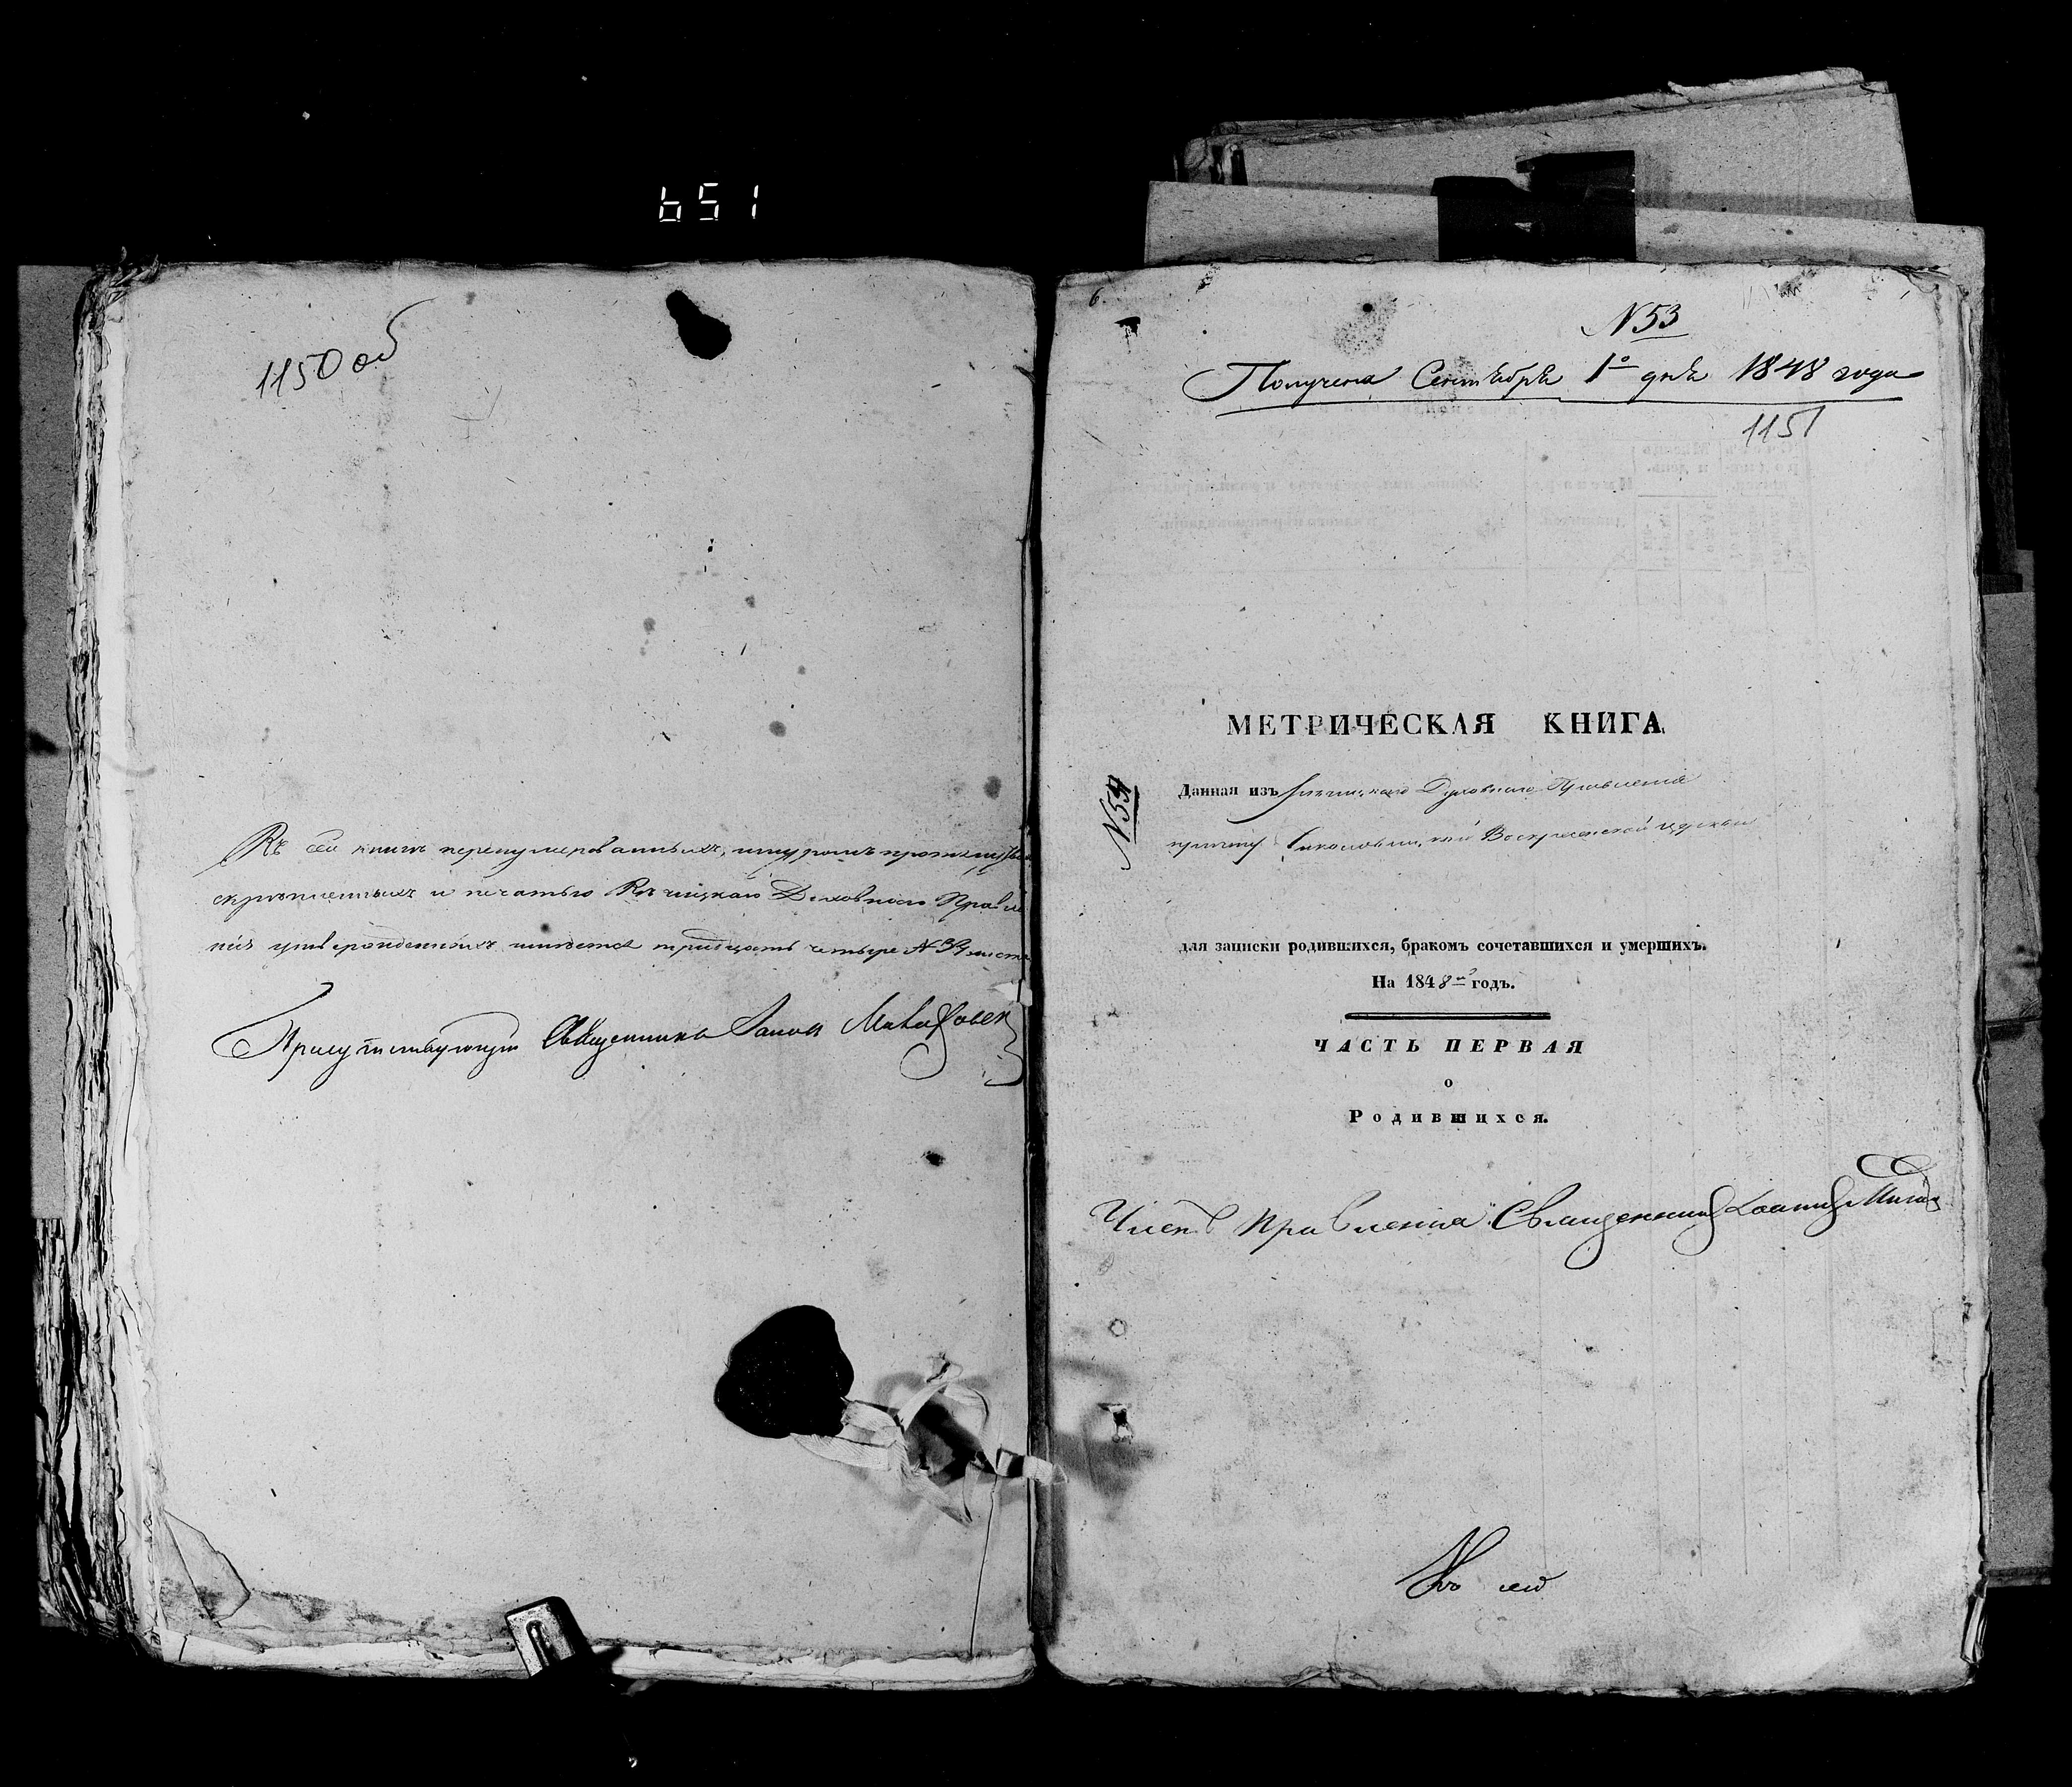 651
1150 об
Въ сей книгѣ перенумерованныхъ, шнуромъ
скрѣпленныхъ и печатью Рѣчицкаго Духовнаго Правле
нія утвержденныхъ имѣется тридцать четыре № 34 листа
Присутствующій Священникъ
N 53
Получена Сентября 1го дня 1848 года
1151
МЕТРИЧЕСКАЯ КНИГА,
N 54
Данная изъ Рѣчицкаго Духовнаго Правленія
причту Воскресенской церкви
для записки родившихся, бракомъ сочетавшихся и умершихъ.
На 1848й годъ.
ЧАСТЬ ПЕРВАЯ
о
Родившихся.
Членъ Правленія Священникъ Іоаннъ